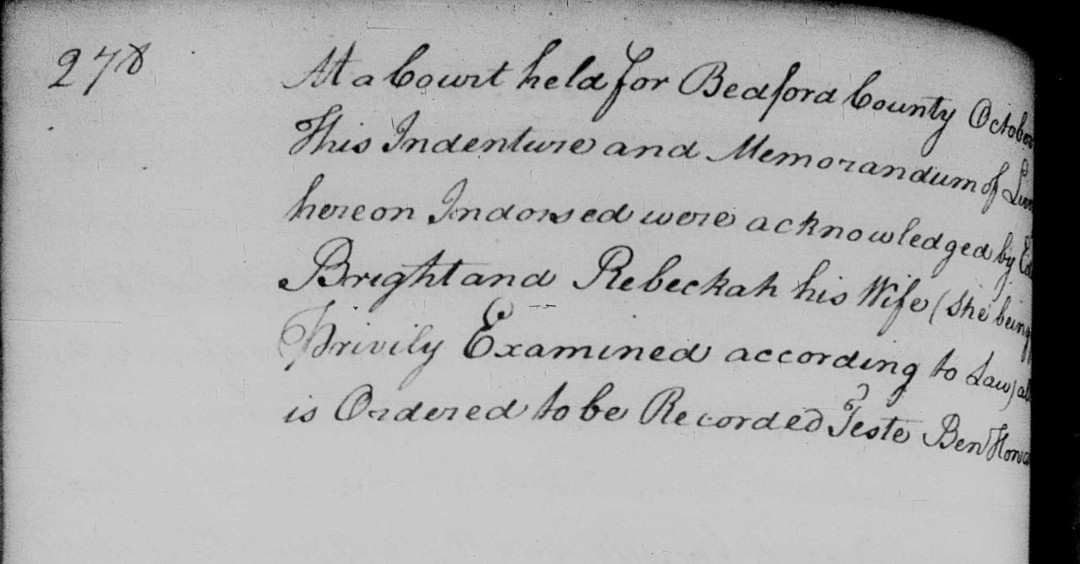 278
At a Court held for Bedford County October
This Indenture and Memorandum of
hereon Indorsed were acknowledged by
Bright and Rebeckah his Wife (She being
Privily Examined according to Law)
is Ordered to be Recorded Teste Ben Howa